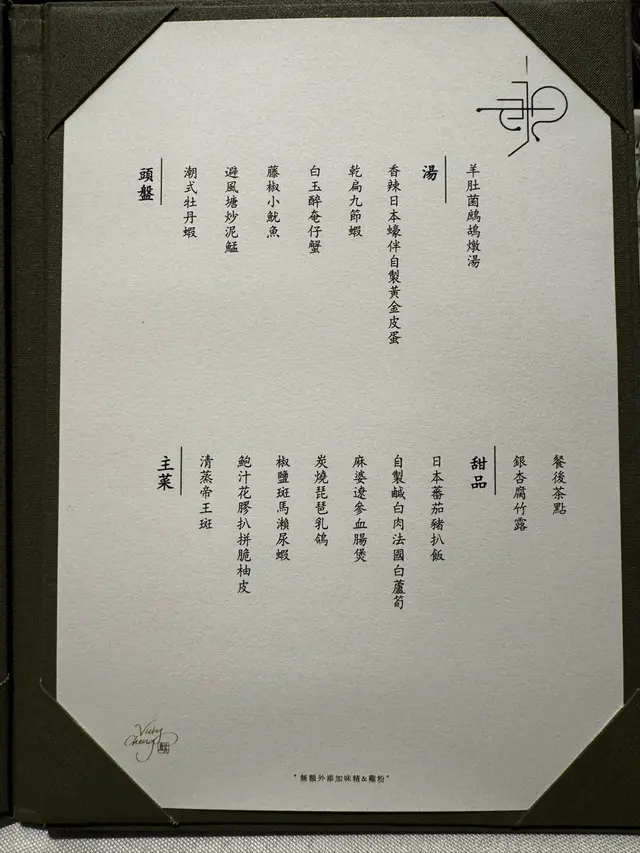 頭盤
潮式牡丹蝦
避風塘炒泥鯭
藤椒小魷魚
白玉醉奄仔蟹
乾扁九節蝦
香辣日本蠔伴自製黃金皮蛋
湯
羊肚菌鷓鴣燉湯
主菜
清蒸帝王斑
鮑汁花膠扒拼脆柚皮
椒鹽斑馬瀨尿蝦
炭燒琵琶乳鴿
麻婆遼參血腸煲
自製鹹白肉法國白蘆筍
日本蕃茄豬扒飯
甜品
銀杏腐竹露
餐後茶點
Vicky
Cheng
"無額外添加味精&雞粉"